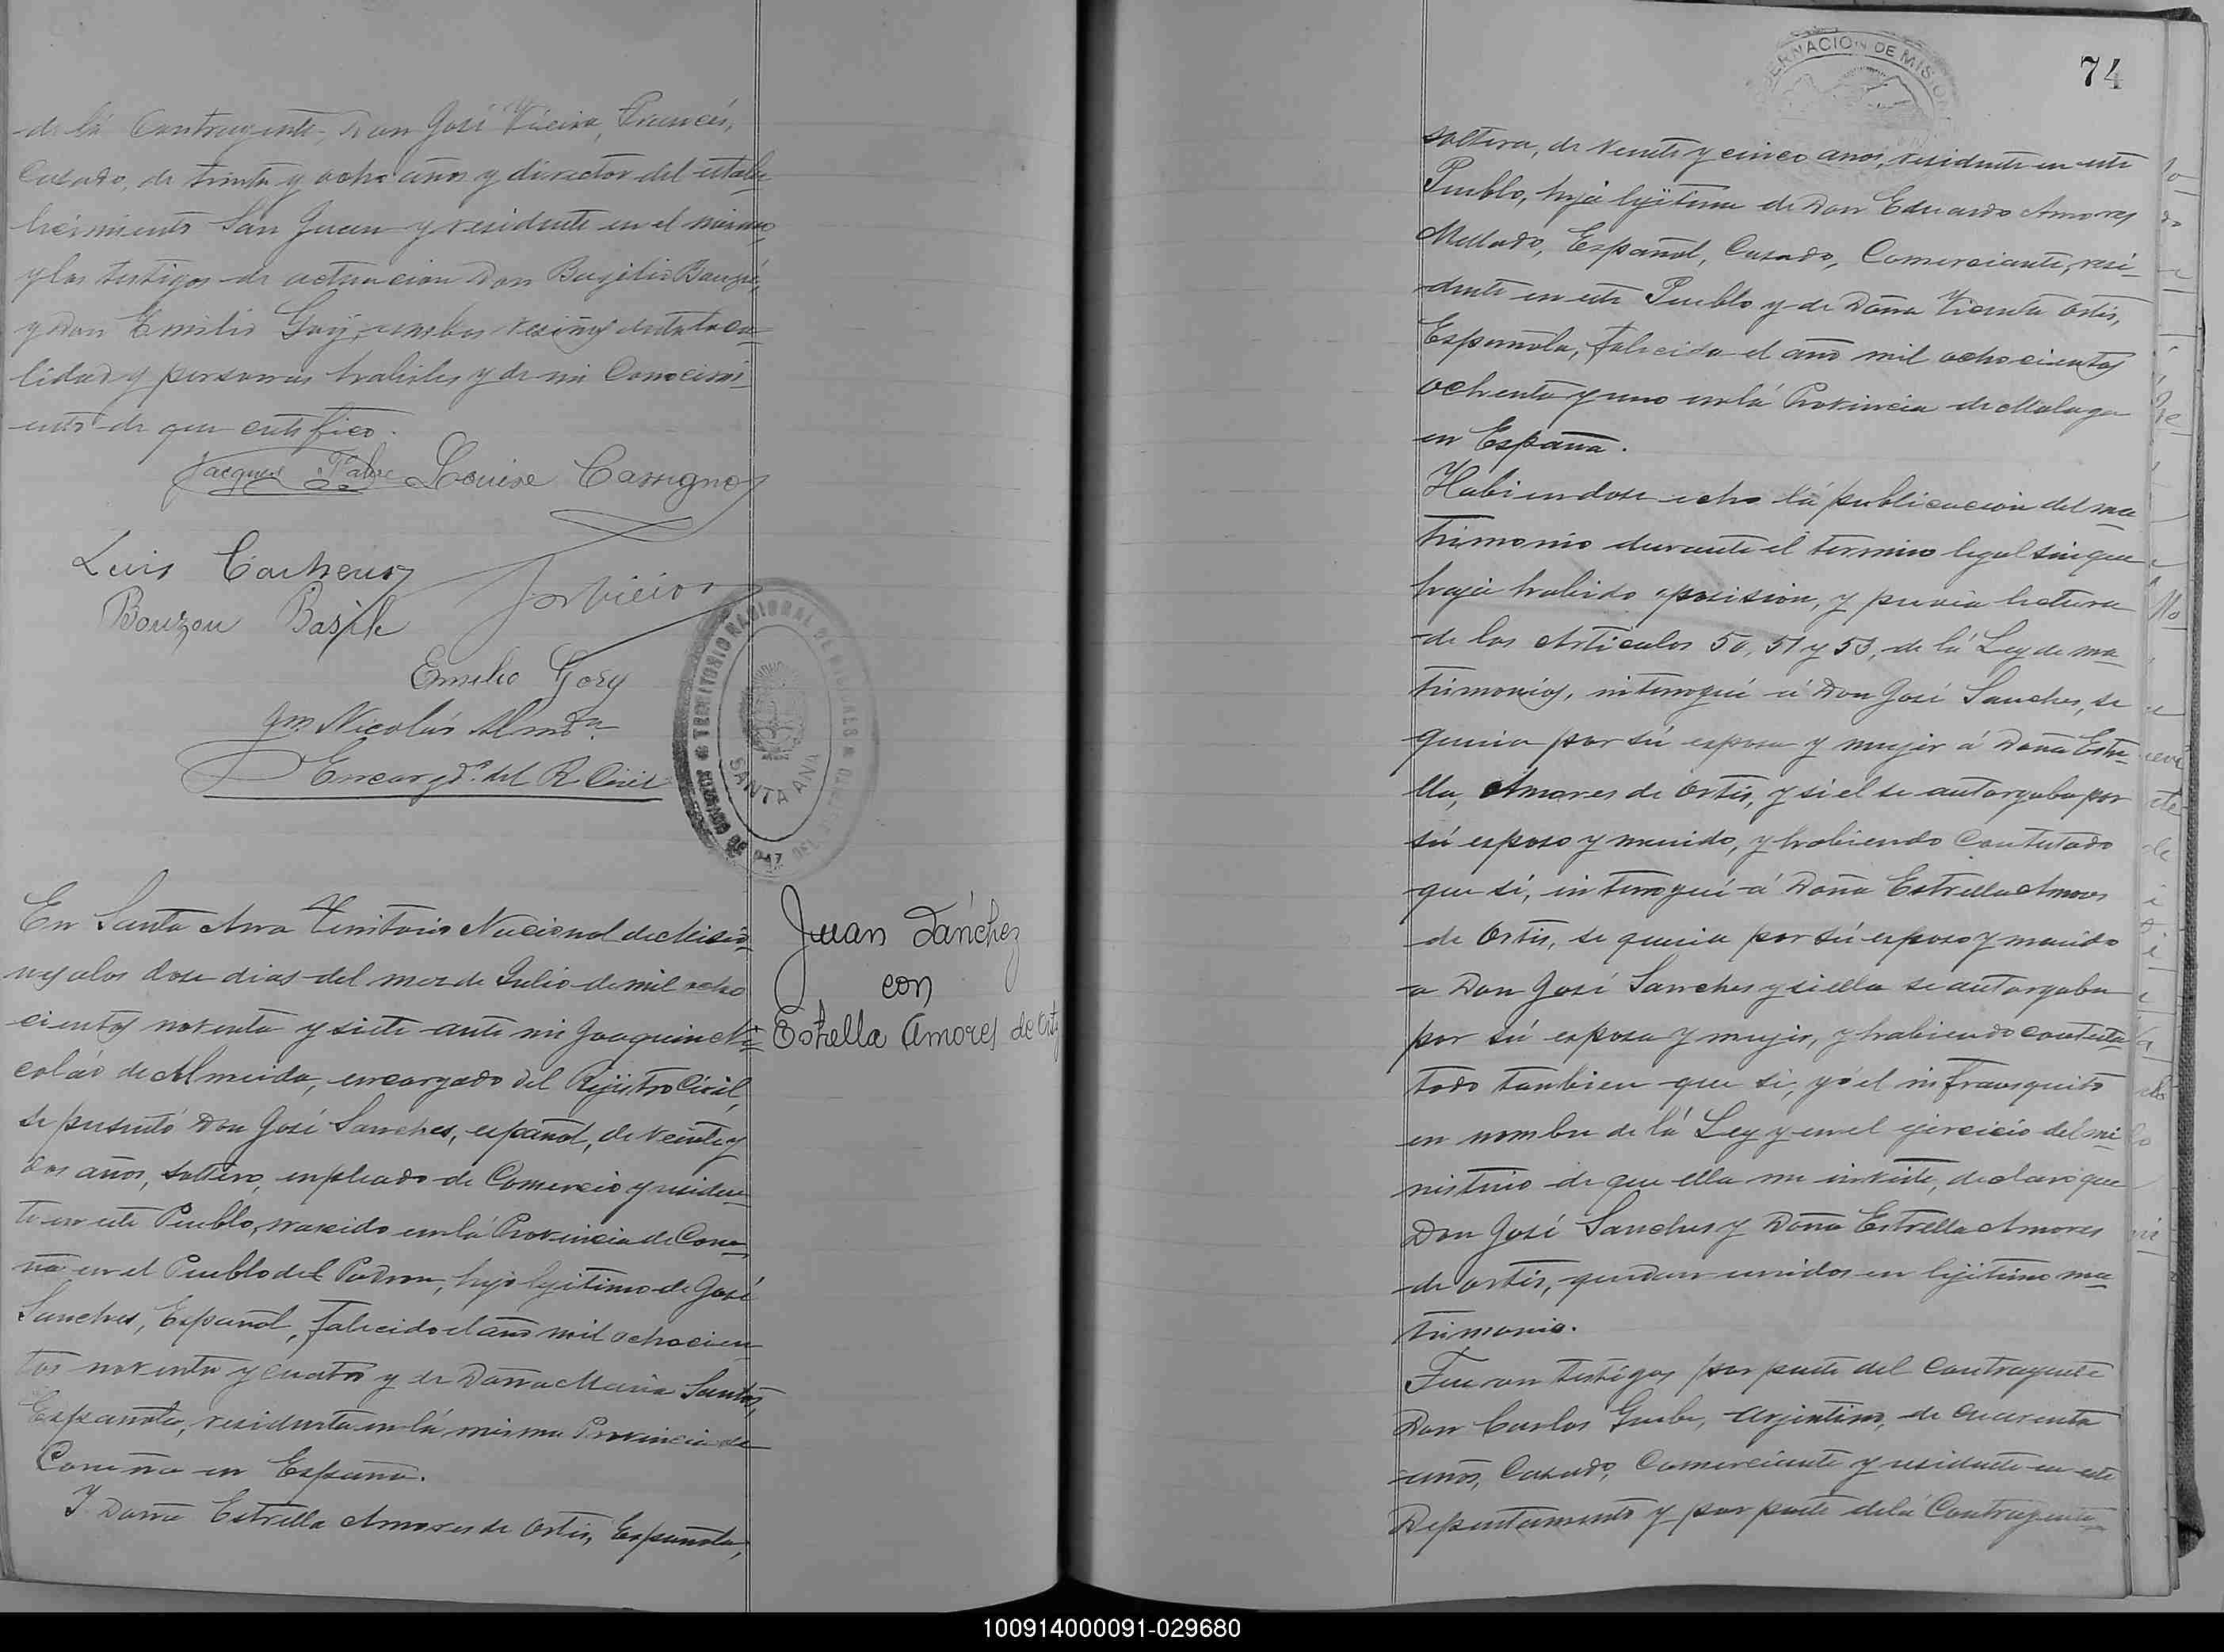 de lá Contrayente, Don José Vieira, Francés,
Casado, de trinta y ocho años y director del estable
hecimiento San Juan y residente en el mismo,
y los testigos de actuacion Don Bazilio Bauzá,
y Don Emilio Goÿ, ambos vesiños de esta loca
lidad y personas habiles y de mi Conocimi
ento de que certifico.
Jacques Fabre Louise Cassagne
Luis Cacheux
Bouzon Basile
Emilio Gory
Jm. Nicolás Almda
Encargdo. del R. Civil
TERRITORIO NACIONAL DE MISIONES
JUZGADO DE PAZ DEL
SANTA ANA
En Santa Ana Territorio Nacional de Misio
nes a los dose dias del mes de Julio de mil ocho
cientos noventa y siete ante mi Joaquin Ni
colás de Almeida, encargado del Rejistro Civil,
se presentó Don José Sanches, español, de veinte y
dos años, soltero, enpleado de Comercio y residen
te en este Pueblo, nascido en lá Provincia de Coru
ña en el Pueblo del Padron, hijo lejitimo de José
Sanches, Español, falecido el año mil ochocien
tos noventa y cuatro y de Doña Maria Santos,
Española, residente en lá misma Provincia de
Coruña en España.
Y Doña Estrella Amores de Ortis, Española,
Juan Sánchez
con
Estrella Amores de Ortiz
GOBERNACION DE MISIONES
74
soltera, de veinte y cinco años, residente en este
Pueblo, hija lejitima de Don Eduardo Amores
Mellado, Español, Casado, Comerciante, resi
dente en este Pueblo y de Doña Vicenta Ortis,
Española, falecida el año mil ochocientos
ochenta y uno en lá Provincia de Malaga
en España.
Habiendose echo lá publicacion del ma
trimonio durante el termino legal sin que
haja habido oposision, y previa lectura
de los Articulos 50, 51 y 53, de lá Ley de ma
trimonios, interroqué á Don José Sanches, se
queria por sú esposa y mujer á Doña Estre
lla, Amores de Ortis, y si el se autorgaba por
sú esposo y marido, y habiendo Contestado
que sí, interroqué á Doña Estrella Amores
de Ortis, se queria por sú esposo y marido
a Don José Sanches y si ella se autorgaba
por sú esposa y mujer, y habiendo contesta
tado tanbien que si, yó el infrasquito
en nombre de lá Ley y en el ejercicio del mi
nisterio de que ella me inviste, declaro que
Don José Sanches y Doña Estrella Amores
de Ortis, quedan unidos en lejitimo ma
trimonio.
Fueron testigos por parte del Contrayente
Don Carlos Guebe, Arjentino, de cuarenta
años, Casado, Comerciante y residente en este
Departamento y por parte de lá Contrayente
100914000091-029680